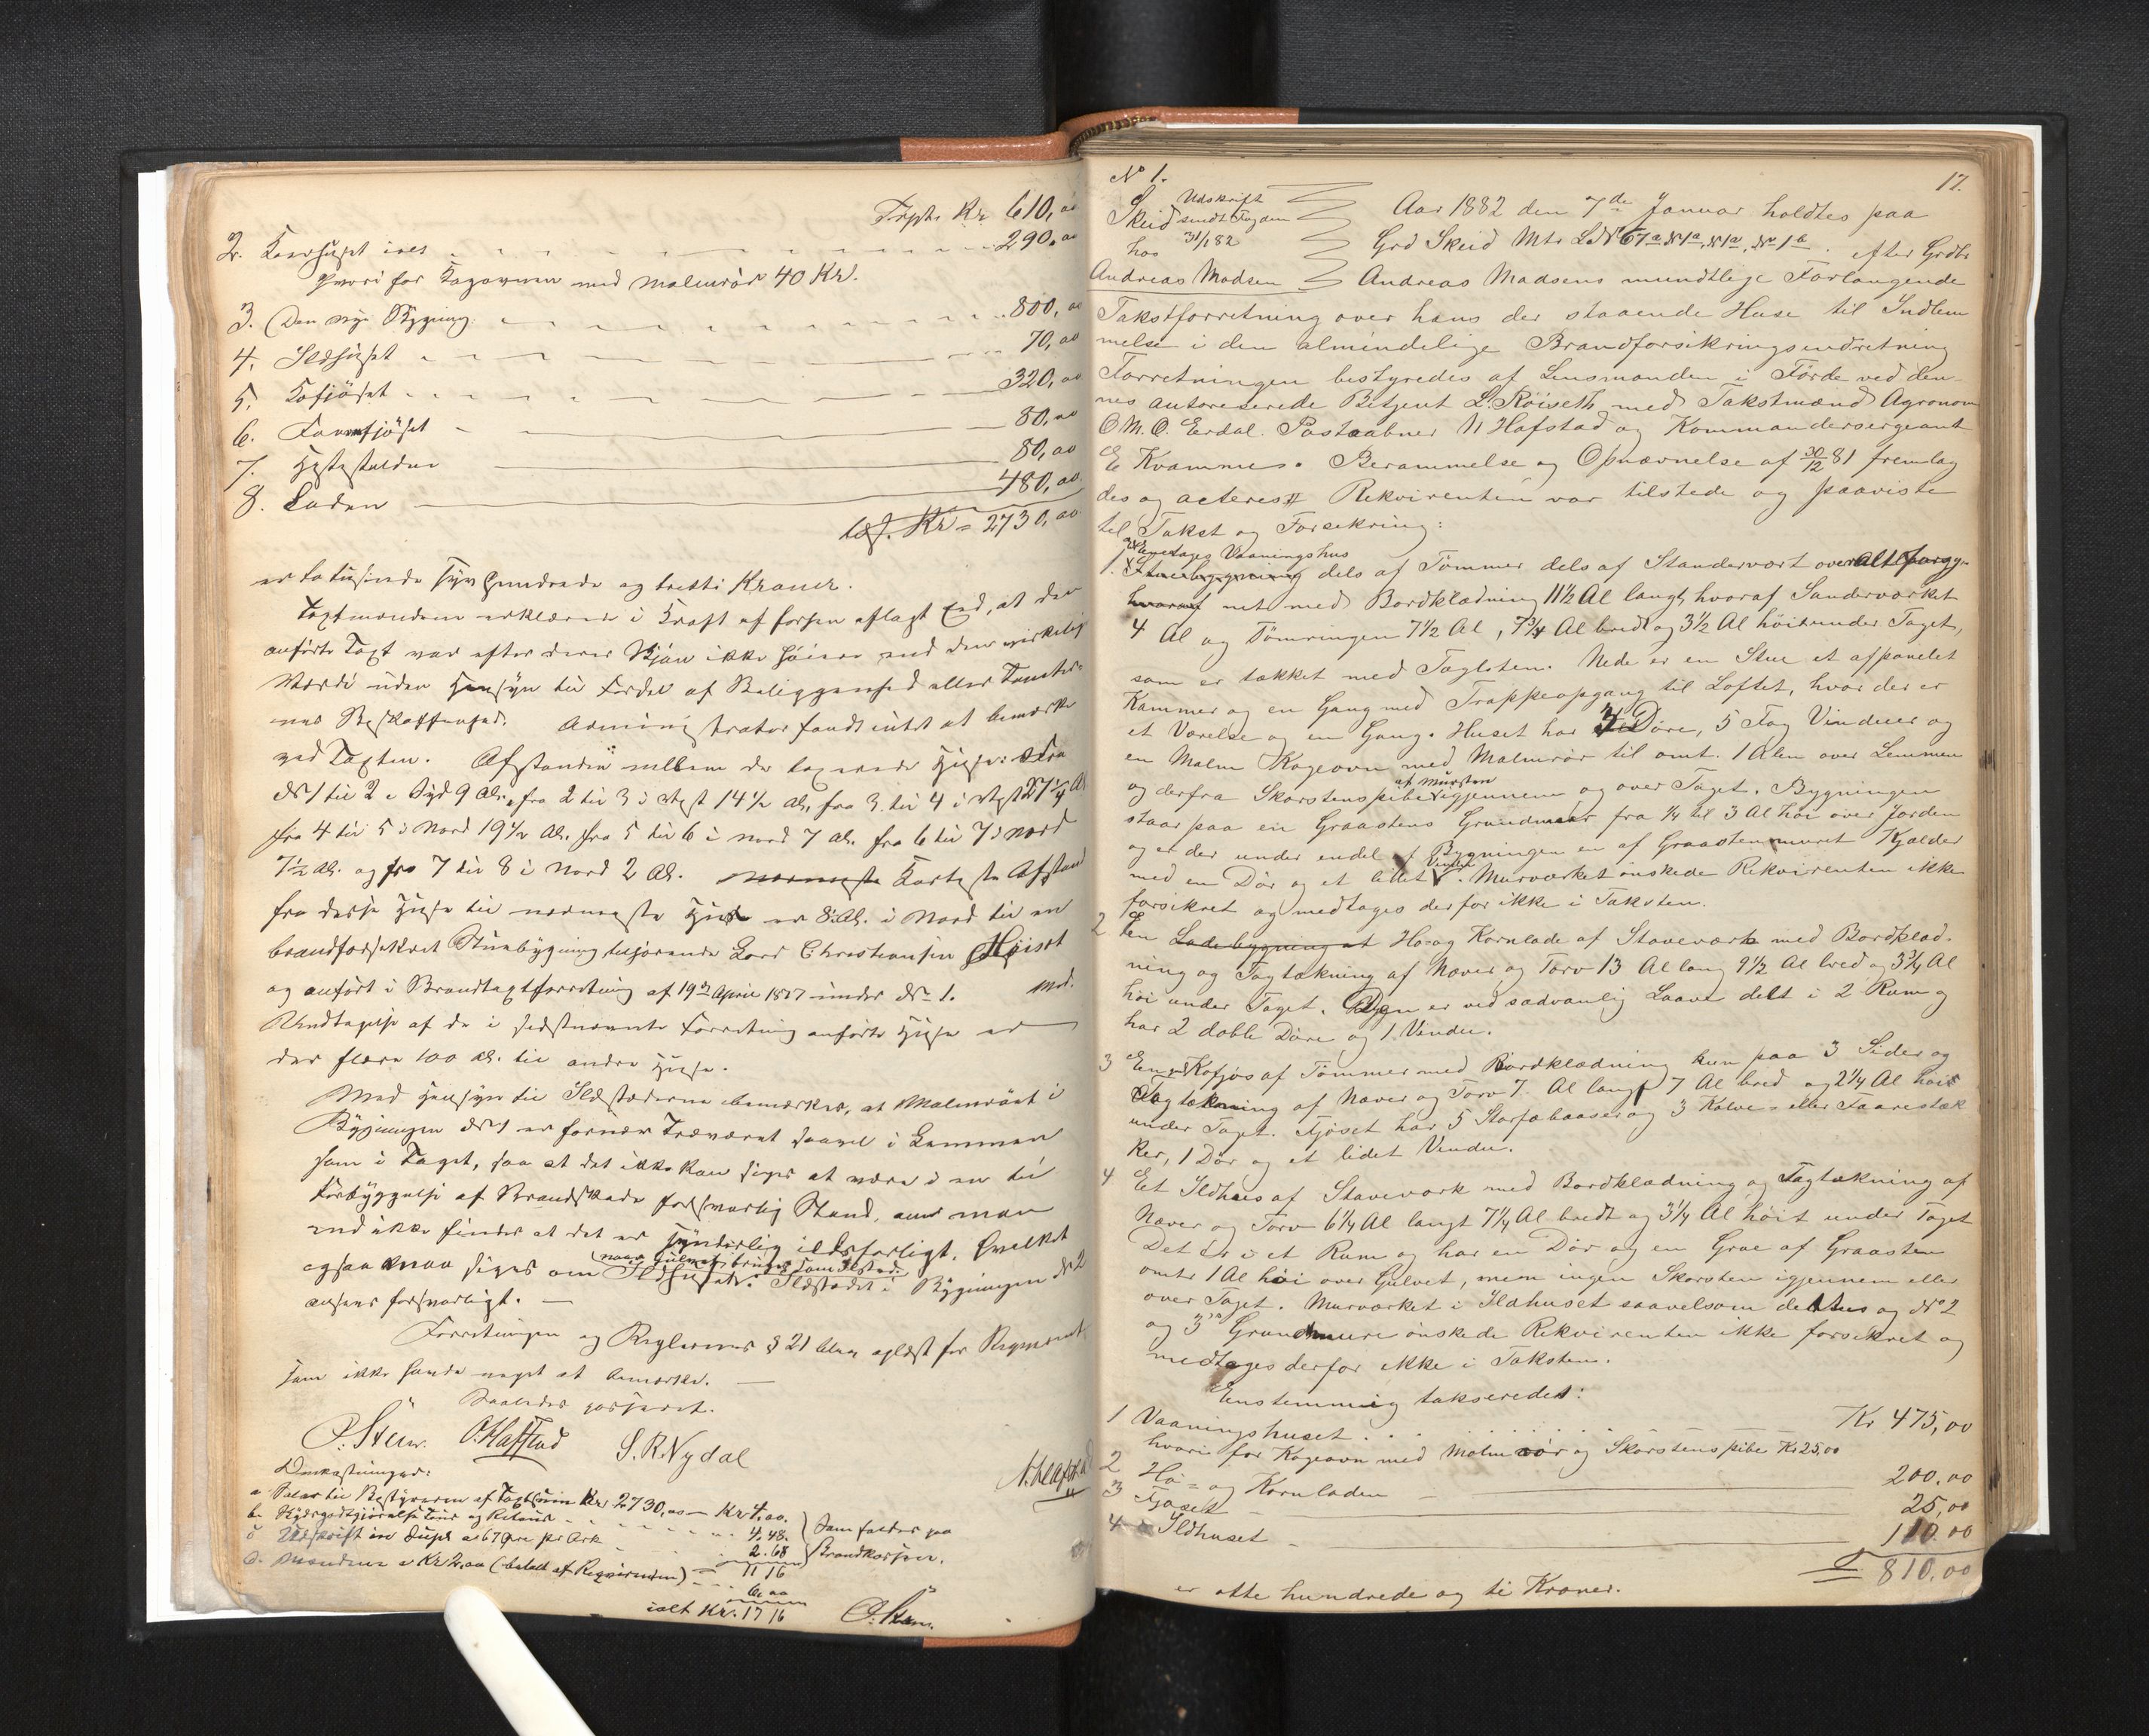 Trspt. Kr 610,00
2. Kaarhuset ives 290,00
hvori for Kogeovnen med Malmrör 40 Kr.
3. Den nye Bygning 800,00
4. Ildhuset 70,00
5. Kofjöset 320,00
6. Faarefjöset 80,00
7. Hestestalden 80,00
8. Laden 480,00
Kr = 2730,00
er to tusinde syv hundrede og tretti Kroner.
Taxtmændene erklærede i Kraft af forhen aflagt Eed, at den
anförte Taxt var efter deres Skjön ikke höiere end den virkelige
Værdi uden Hensyn til Fordel af Beliggenhed eller Tomter-
nes Beskaffenhed. Administrator fandt intet at bemærke
ved Taxten. Afstanden mellem de taxerede Huse: Fra
No 1 til 2 i Syd 9 Al., fra 2 til 3 i Vest 14½ Al, fra 3 til 4 i Vest 27¼ Al
fra 4 til 5 i Nord 19½ Al. fra 5 til 6 i Nord 7 Al. fra 6 til 7 i Nord
7½ Al. og fra 7 til 8 i Nord 2 Al. Korteste Afstand
fra disse Huse til nærmeste Huse er 8 Al. i Nord til en
brandforsikret Stuebygning tilhörende Lars Christiansen
og anfört i Brandtaxtforretning af 19de April 1877 under No 1. Med
Undtagelse af de i sidstnævnte Forretning anförte Huse er
der flere 100 Al. til andre Huse.
Med Hensyn til Ildstederne bemærkes, at Malmröret i
Bygningen No 1 er fornær Træværet saavel i Lemmen
som i Taget, saa at det ikke kan siges at være i en til
Forbyggelse af Brandskade forsvarlig Stand, om man
end ikke finder at det er synderlig ildsfarligt. Hvilket
ogsaa maa siges om Ildhuset. Ildstedet i Bygningen No 2
ansees forsvarligt. —
Forretningen og Reglernes § 21 blev oplæst for Reqvirenten
som ikke havde noget at bemærke. —
Saaledes passeret.
O. Hafstad S. R. Nydal
Omkostninger:
a. Salær til Bestyreren af Taxtsum Kr. 2730,00 — Kr 4,00.
b. Skydsgodtgjörelse Tour og Retour 4.48.
c Udskrift in dupl. a 67 Öre pr Ark 2.68
Som falder paa
Brandkassen.
11 16
d. Mændene a Kr 2,00 (betalt af Reqvirenten) 6,00
ialt Kr. 17 16
No 1.
17.
Skeid
hos
Andreas Madsen
Udskrift
sendt Fogden
31/1 82
Aar 1882 den 7de Januar holdtes paa
Grd Skeid Mtr LNr 67a efter Grdbr
Andreas Madsens mundtlige Forlangende
Takstforretning over hans der staaende Huse til Indlem
melse i den almindelige Brandforsikringsindretning
Forretningen bestyredes af Lensmanden i Förde ved den-
nes autoreserede Betjent L. Röiseth med Takstmænd Agronom
O M. O. Erdal. Postaabner N Hafstad og Kommandersergeant
E Kvamme. Berammelse og Opnævnelse af 30/12 81 fremlag
des og acteres Rekvirenten var tilstede og paaviste
til Takst og Forsekring:
1. Et Enetages Vaaningshus dels af Tömmer dels af Standervært overalt forsy-
net med Bordklædning 11½ Al langt, hvoraf Sanderværket
4 Al og Tömringen 7½ Al, 7¾ Al bredt og 3½ Al höit under Taget,
som er tækket med Taglsten. Nede er en Stue et afpanelet
Kammer og en Gang med Trappeopgang til Loftet, hvor der er
et Værelse og en Gang. Huset har 4 Döre, 5 Fag Vinduer og
en Malm Kogeovn med Malmrör til omt. 1 Alen over Lemmen
og derfra Skorstenspibe af Mursten igjennem og over Taget. Bygningen
staar paa en Graastens Grundmuur fra ¼ til 3 Al höi over Jorden
og er der under endel af Bygningen en af Graasten muret Kjælder
med en Dör og et lidet Vindu. Murværket önskede Rekvirenten ikke
forsikret og medtages derfor ikke i Taksten.
2 En Ladebygning at Hö og Kornlade af Staveværk med Bordklæd-
ning og Tagtækning af Næver og Torv 13 Al lang 9½ Al bred og 3¾ Al
höi under Taget. Den er ved sædvanlig Laave delt i 2 Rum og
har 2 doble Döre og 1 Vindu.
3 En Kofjös af Tömmer med Bordklædning kun paa 3 Sider og
Tagtækning af Næver og Torv 7. Al langt 7 Al bred og 2¼ Al höit
under Taget. Fjöset har 5 Storfæbaaser og 3 Kalve- eller Faarestæk
ker, 1 Dör og et lidet Vindu.
4 Et Ildhus af Staveværk med Bordklædning og Tagtækning af
Næver og Torv 6¼ Al langt 7¼ Al bredt og 3¼ Al höit under Taget
Det er i et Rum og har en Dör og en Grue af Graasten
omtr 1 Al höi over Gulvet, men ingen Skorsten igjennem eller
over Taget. Murværket i Ildhuset saavelsom dettes og No 2
og 3s Grundmure önskede Rekvirenten ikke forsikret og
medtages derfor ikke i Taksten.
Enstemmig takseredes:
1 Vaaningshuset . . . Kr 475,00
hvori for Kogeovn med Malmrör og Skorstenspibe Kr 25,00
2 Hö- og Kornladen 200,00
3 Fjöset 25,00
4 Ildhuset 110.00
810,00
er otte hundrede og ti Kroner.